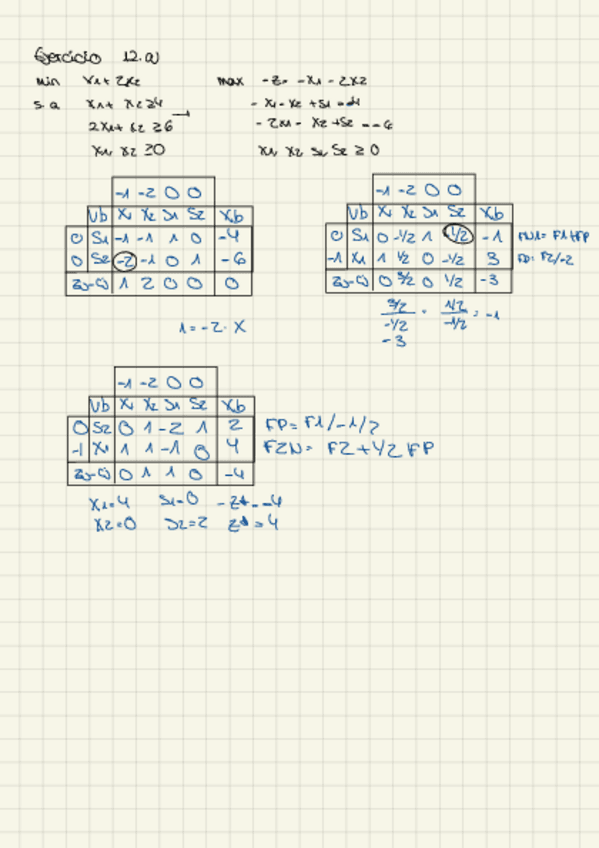 Ejercicio 12.a)
min x1+2x2
s.a x1+ x2 ≥4 →
2x1+ x2 ≥6
x1, x2 ≥0
max -z= -x1 - 2x2
- x1- x2 +s1 =-4
- 2x1 - x2 +s2 = -6
x1, x2 s1, s2 ≥ 0
-1 -2 0 0
Vb x1 x2 s1 s2 xb
0 s1 -1 -1 1 0 -4
0 s2 -2 -1 0 1 -6
zj-cj 1 2 0 0 0
1=-2·x
-1 -2 0 0
Vb x1 x2 s1 s2 xb
0 s1 0 -1/2 1 -1/2 -1 FN1= F1+FP
-1 x1 1 1/2 0 -1/2 3 FP: F2/-2
zj-cj 0 3/2 0 1/2 -3
3/2 / -1/2 1/2 / -1/2 = -1
-3
-1 -2 0 0
Vb x1 x2 s1 s2 xb
0 s2 0 1 -2 1 2 FP= F1/-1/2
-1 x1 1 1 -1 0 4 F2N= F2+1/2 FP
zj-cj 0 1 1 0 -4
x1=4 s1=0 -z*=-4
x2=0 s2=2 z*=4